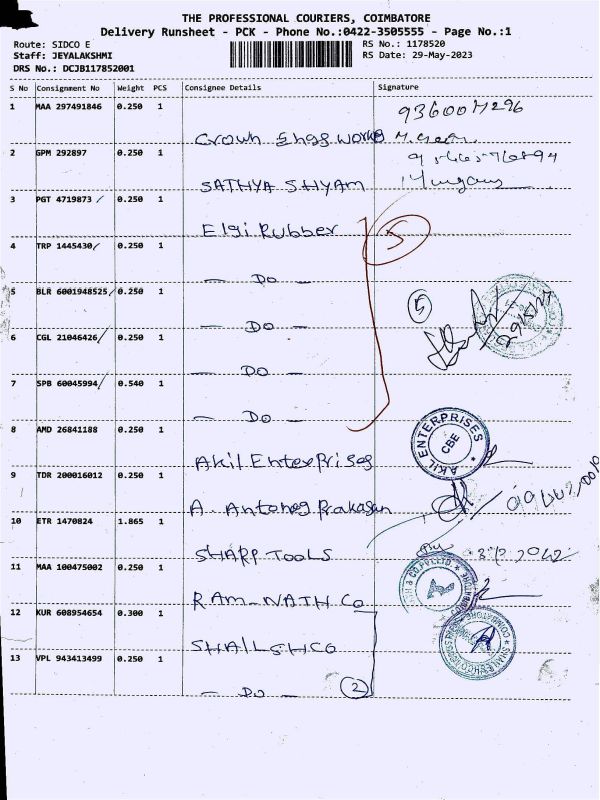 THE PROFESSIONAL COURIERS, COIMBATORE
Delivery Runsheet - PCK - Phone No.:0422-3505555 - Page No.:1
Route: SIDCO E
RS No.: 1178520
Staff: JEYALAKSHMI
RS Date: 29-May-2023
DRS No.: DCJB117852001
S No Consignment No Weight PCS Consignee Details Signature
1 MAA 297491846 0.250 1
Crown Engg works
2 GPM 292897 0.250 1
SATHYA SHYAM
3 PGT 4719873 0.250 1
Elgi Rubber 5
4 TRP 1445430 0.250 1
— Do —
5 BLR 6001948525 0.250 1 5
— Do —
6 CGL 21046426 0.250 1
— Do —
7 SPB 60045994 0.540 1
— Do —
8 AMD 26841188 0.250 1
Akil Enterprises
AKIL ENTERPRISES
CBE
9 TDR 200016012 0.250 1
A. Antony Prakasan
10 ETR 1470824 1.865 1
SHARP TOOLS
11 MAA 100475002 0.250 1
RAM-NATH Co
12 KUR 608954654 0.300 1
13 VPL 943413499 0.250 1
— Do — 2